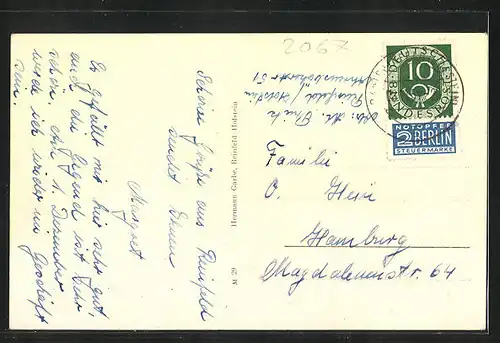 2067
Es gefällt mir hier sehr gut,
auch die Gegend ist sehr
schön. Am 1. Dezember
werde ich wieder im Geschäft
sein.
Schöne Grüße aus Reinfeld
sendet Ihnen
Margret
M 29
Hermann Carbe, Reinfeld Holstein
Reinfeld/Holstein
51
DEUTSCHE
BUNDESPOST
10
NOTOPFER
2 BERLIN
STEUERMARKE
Familie
O. Hein
Hamburg
Magdalenenstr. 64